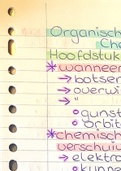 Organisch
Che
Hoofdstuk
* wanneer
→ botser
→ overwi
→ "
gunst
orbit
* chemisch
verschuiv
→ elektro
kunne